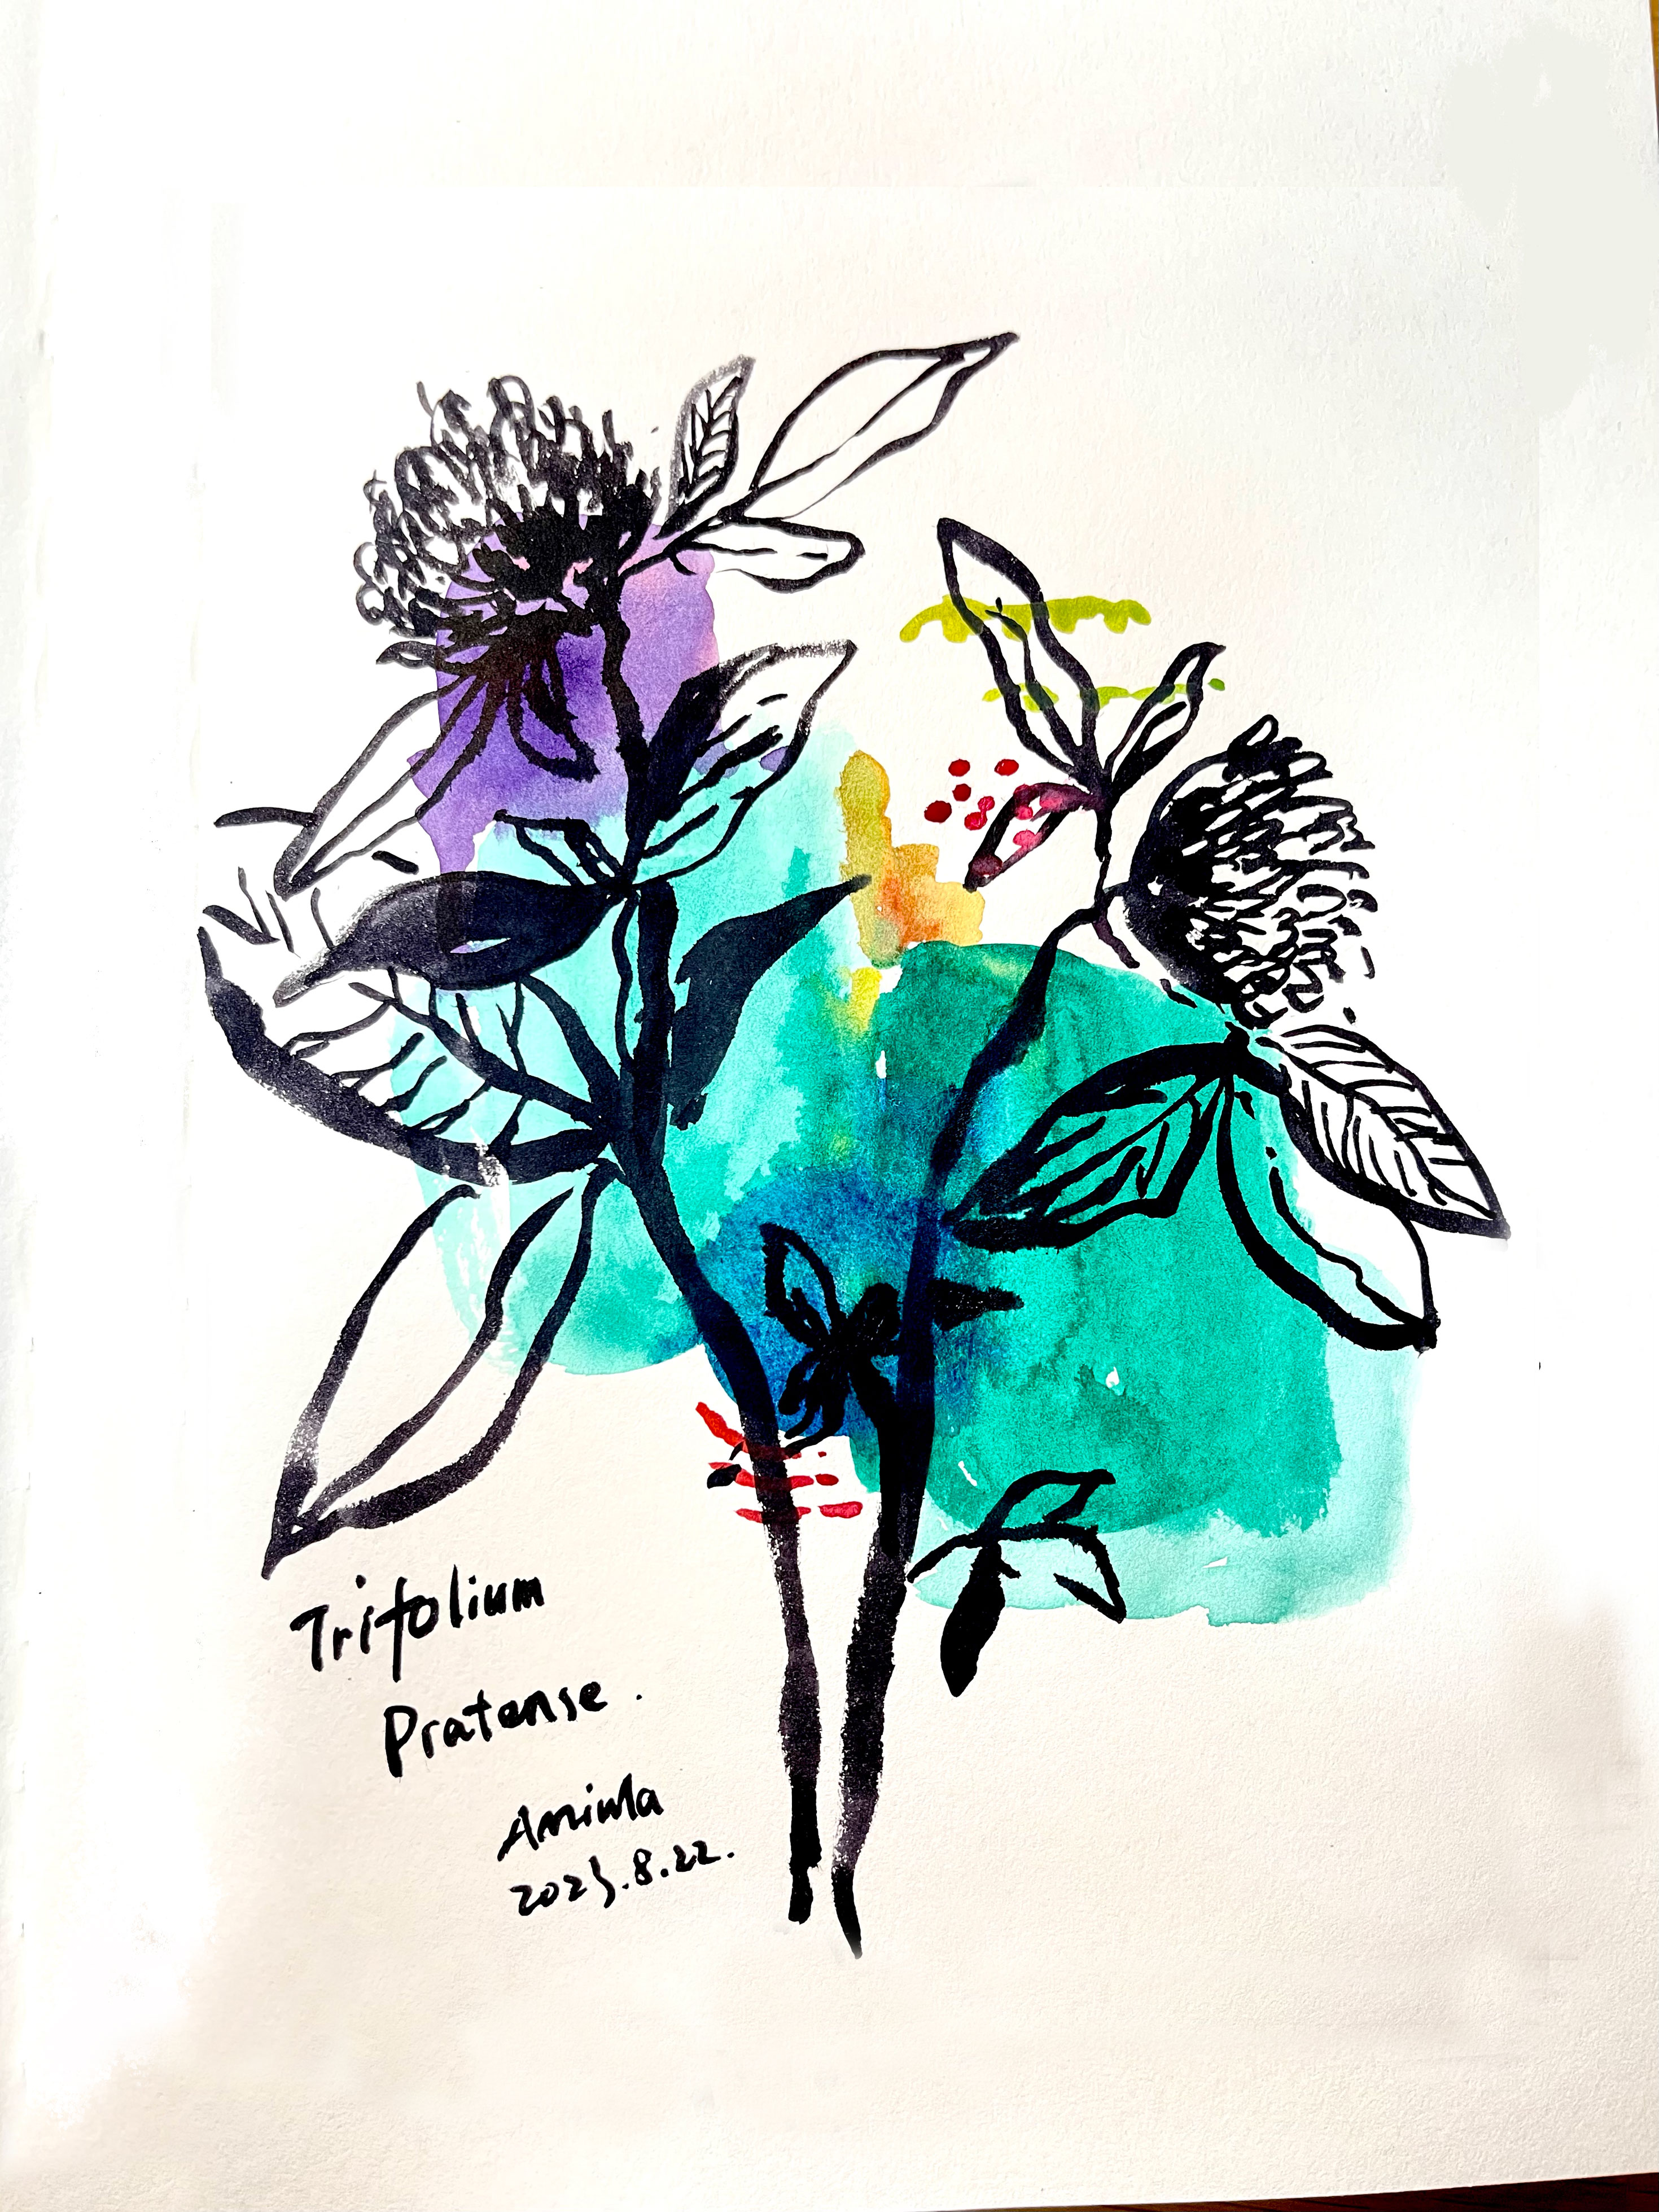 Trifolium
Pratense.
Anima
2023.8.22.